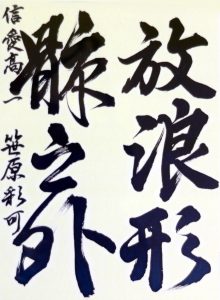 放浪形
骸之外
信愛高一 笹原彩可